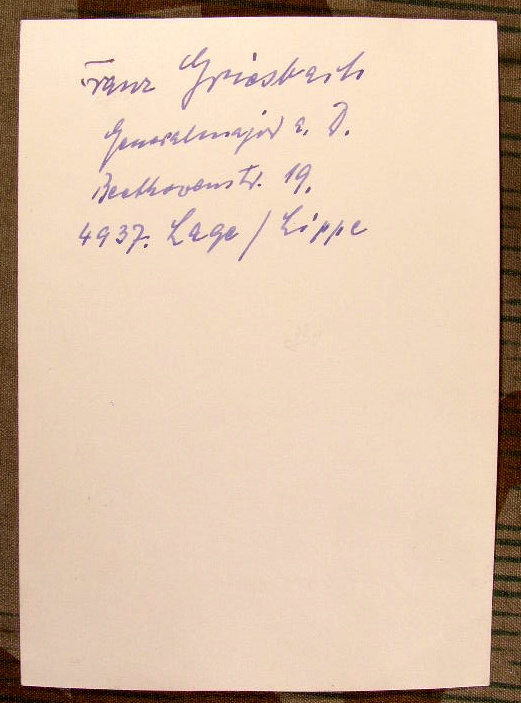 Franz Griesbach
Generalmajor a. D.
Beethovenstr. 19.
4937. Lage / Lippe